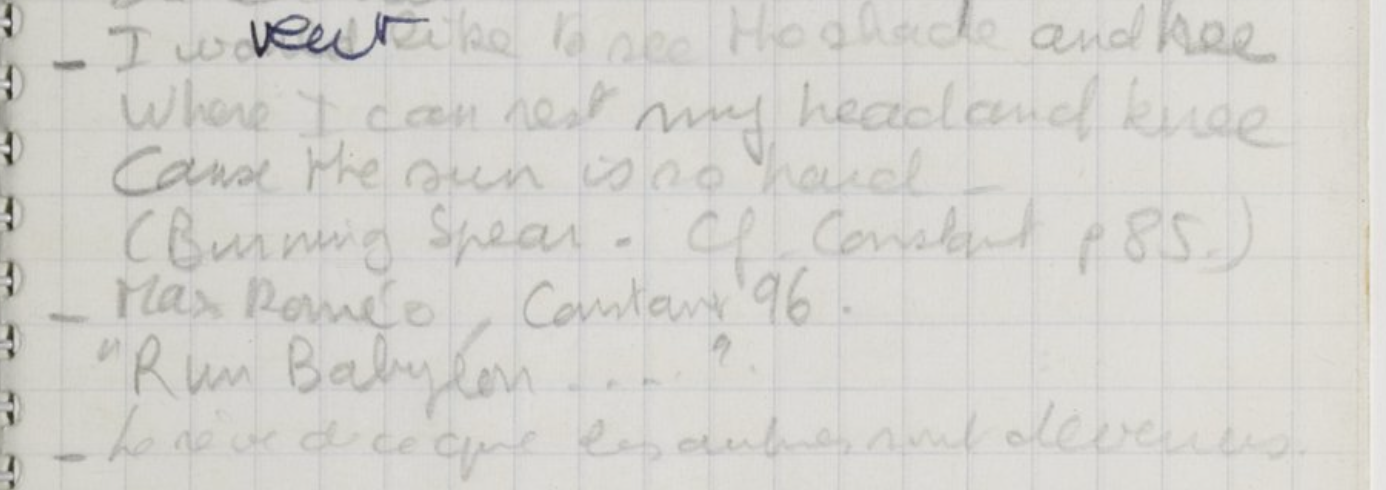 - I would like to see the shade and tree
vent
Where I can rest my head and knee
Cause the sun is so hard -
(Burning Spear. Cf. Constant p 85.)
- Max Roméo, Constant '96.
"Run Babylon .... ?
- Le rêve de ce que les autres sont devenus.